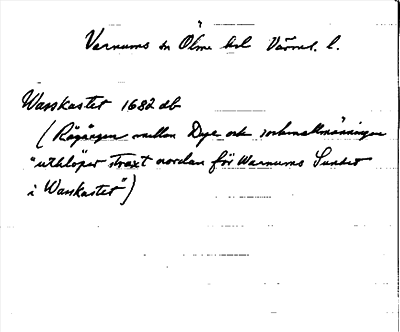 Varnums sn Ölme hd Värml. l.
Wasskastet 1682 db
(Rågången mellan Dye och sockenallmänningen
"utklöper straxt nordan för Warnums Sundet
i Wasskastet")